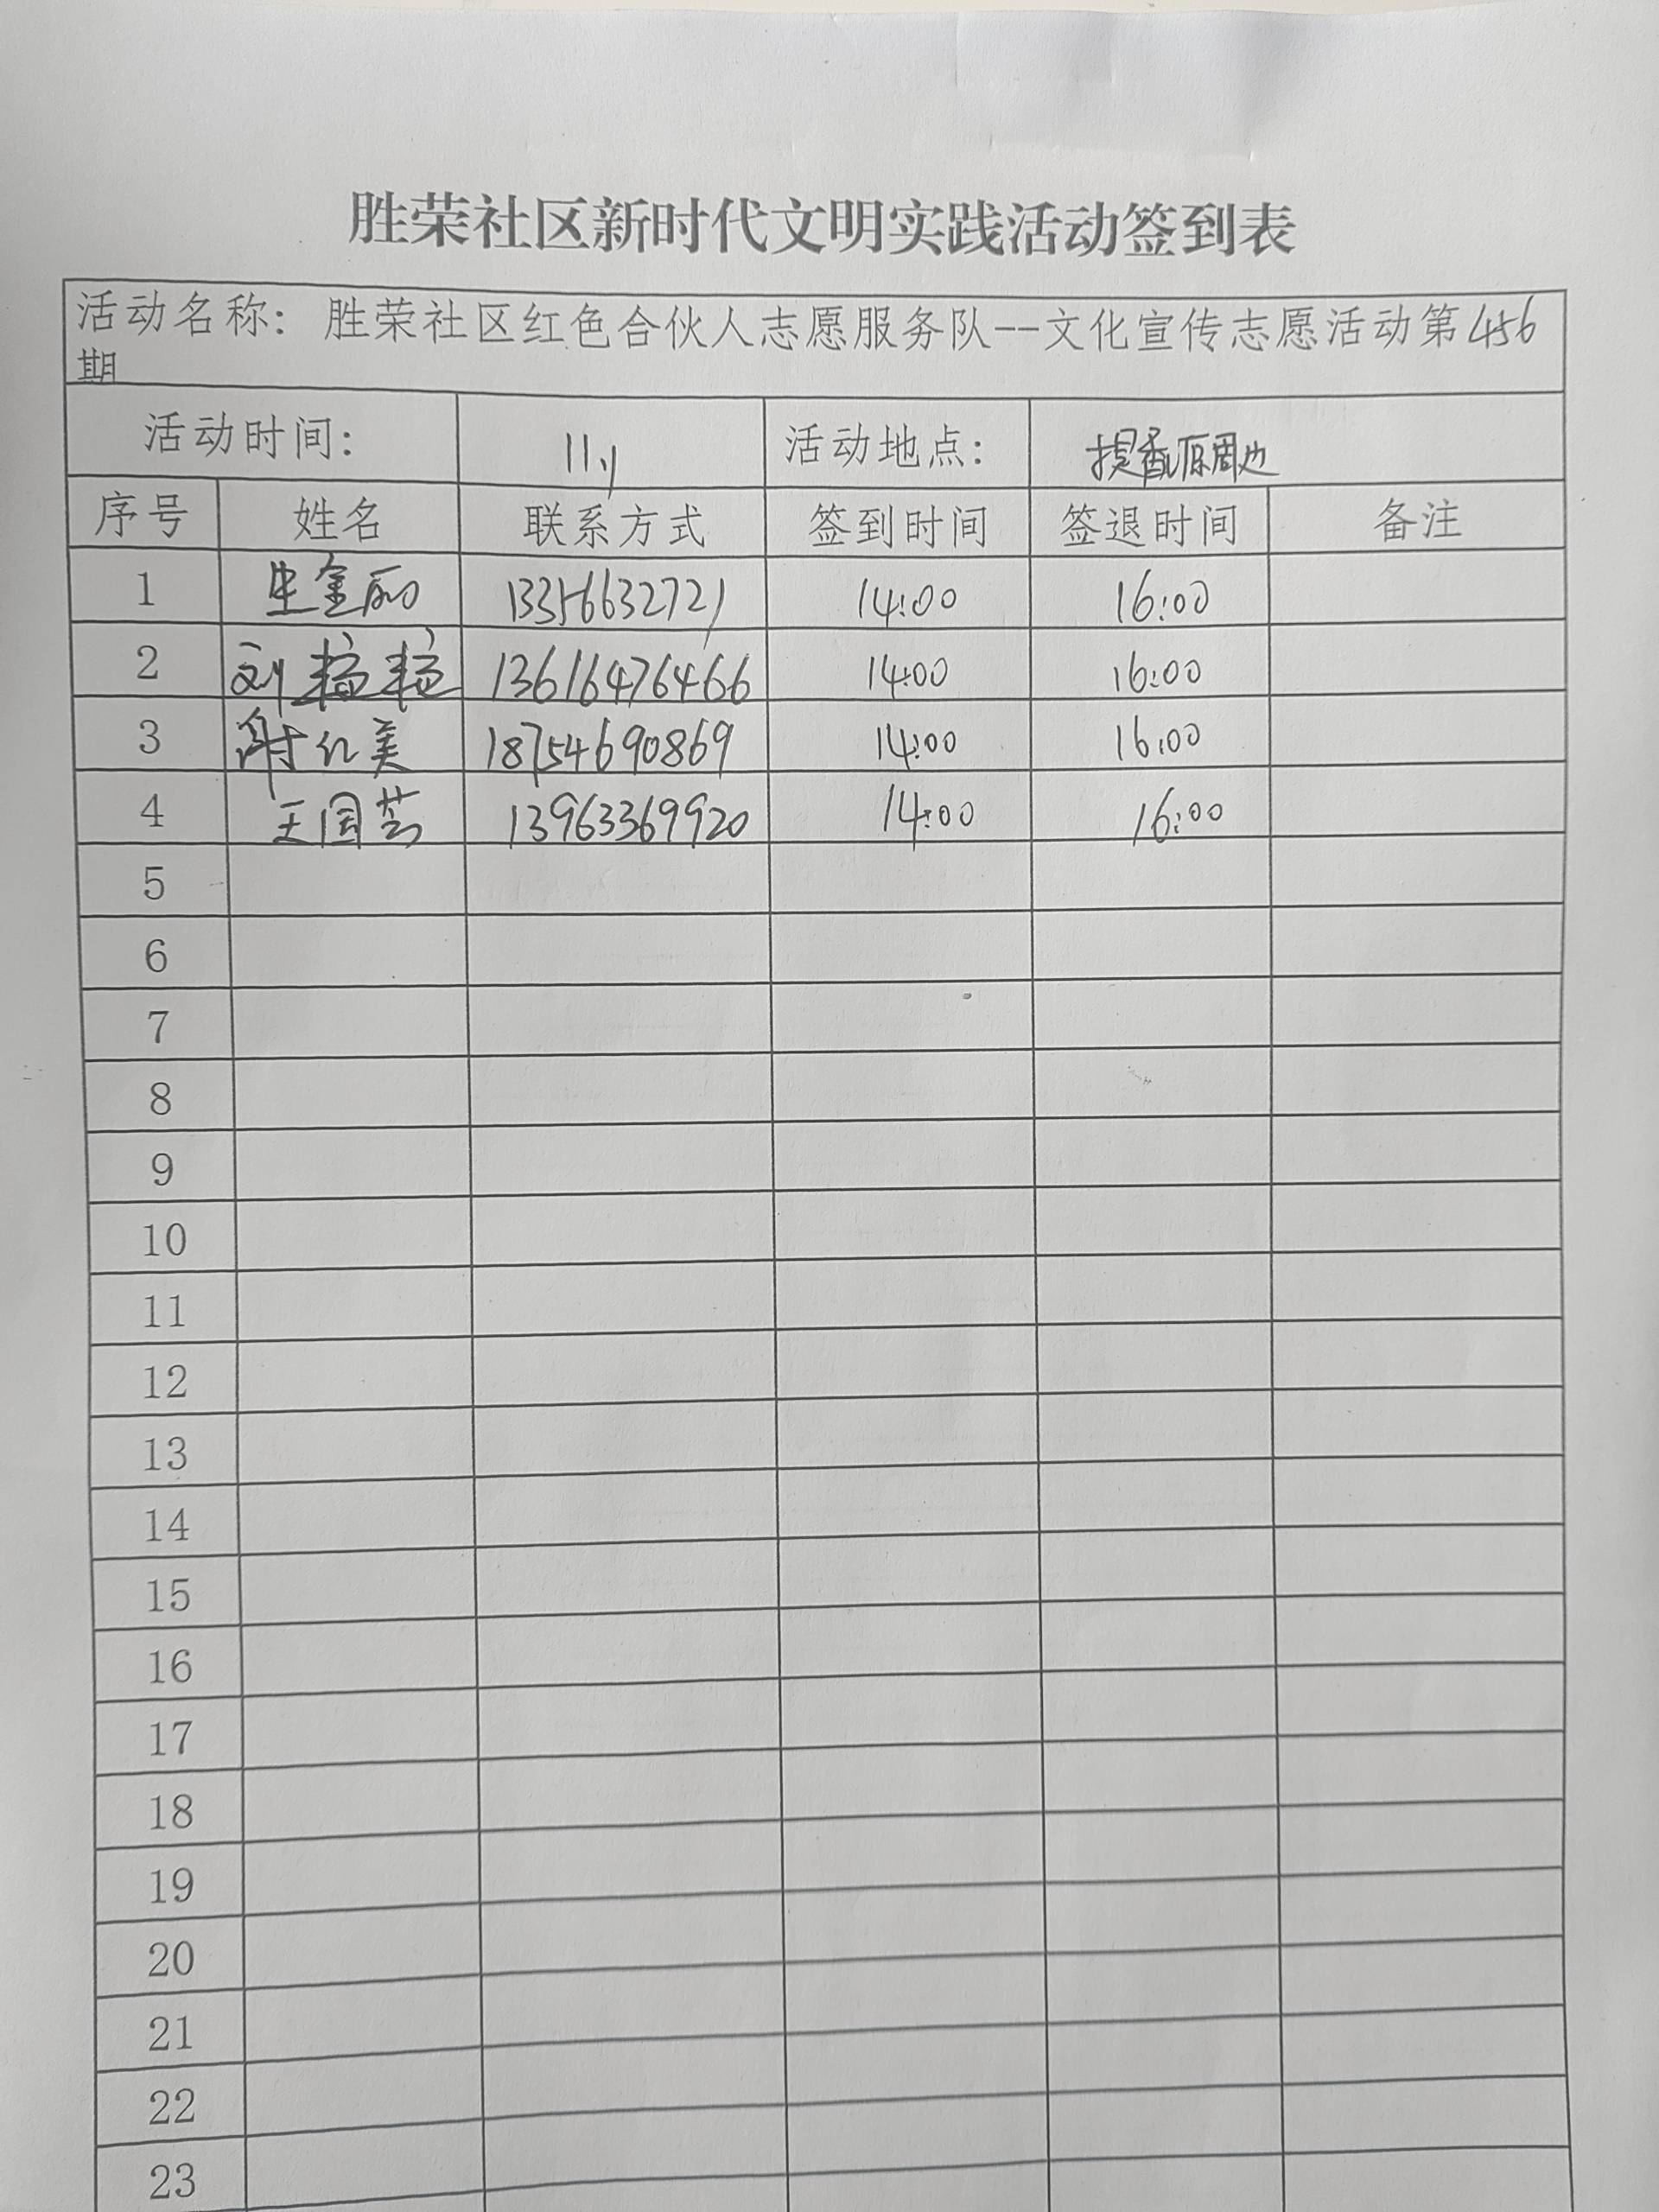 胜荣社区新时代文明实践活动签到表
活动名称：胜荣社区红色合伙人志愿服务队--文化宣传志愿活动第456
期
活动时间： 11.1 活动地点： 提香原周边
序号 姓名 联系方式 签到时间 签退时间 备注
1 生金丽 13356632721 14:00 16:00
2 刘 13616476466 14:00 16:00
3 谢红美 18754690869 14:00 16:00
4 王国芸 13963369920 14:00 16:00
5
6
7
8
9
10
11
12
13
14
15
16
17
18
19
20
21
22
23